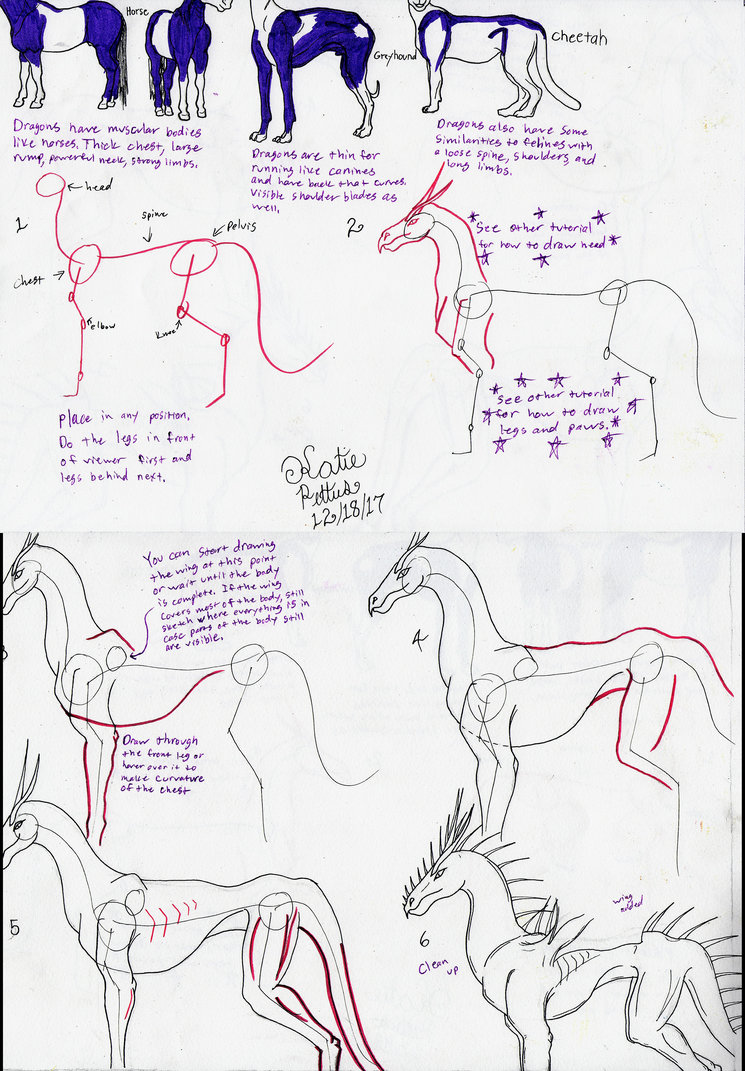 Horse
Greyhound
Cheetah
Dragons have muscular bodies
like horses. Thick chest, large
rump, powerful neck, strong limbs.
Dragons are thin for
running like canines
and have back that curves.
Visible shoulder blades as
well.
Dragons also have some
similarities to felines with
a loose spine, shoulders, and
long limbs.
1
head
spine
Pelvis
chest
elbow
knee
Place in any position.
Do the legs in front
of viewer first and
legs behind next.
2
See other tutorial
for how to draw head
See other tutorial
for how to draw
legs and paws.
Katie
Pettus
12/18/17
3
You can start drawing
the wing at this point
or wait until the body
is complete. If the wing
covers most of the body, still
sketch where everything is in
case parts of the body still
are visible.
Draw through
the front leg or
hover over it to
make curvature
of the chest
4
5
6
Clean
up
wing
added